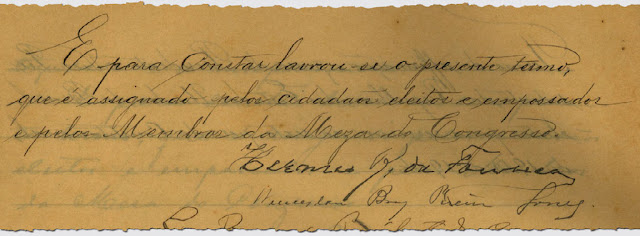 E para Constar lavrou-se o presente termo,
que é assignado pelos cidadãos eleitos e empossados
e pelos Membros da Meza do Congresso.
Hermes R. da Fonseca
Wenceslau Braz Pereira Gomes